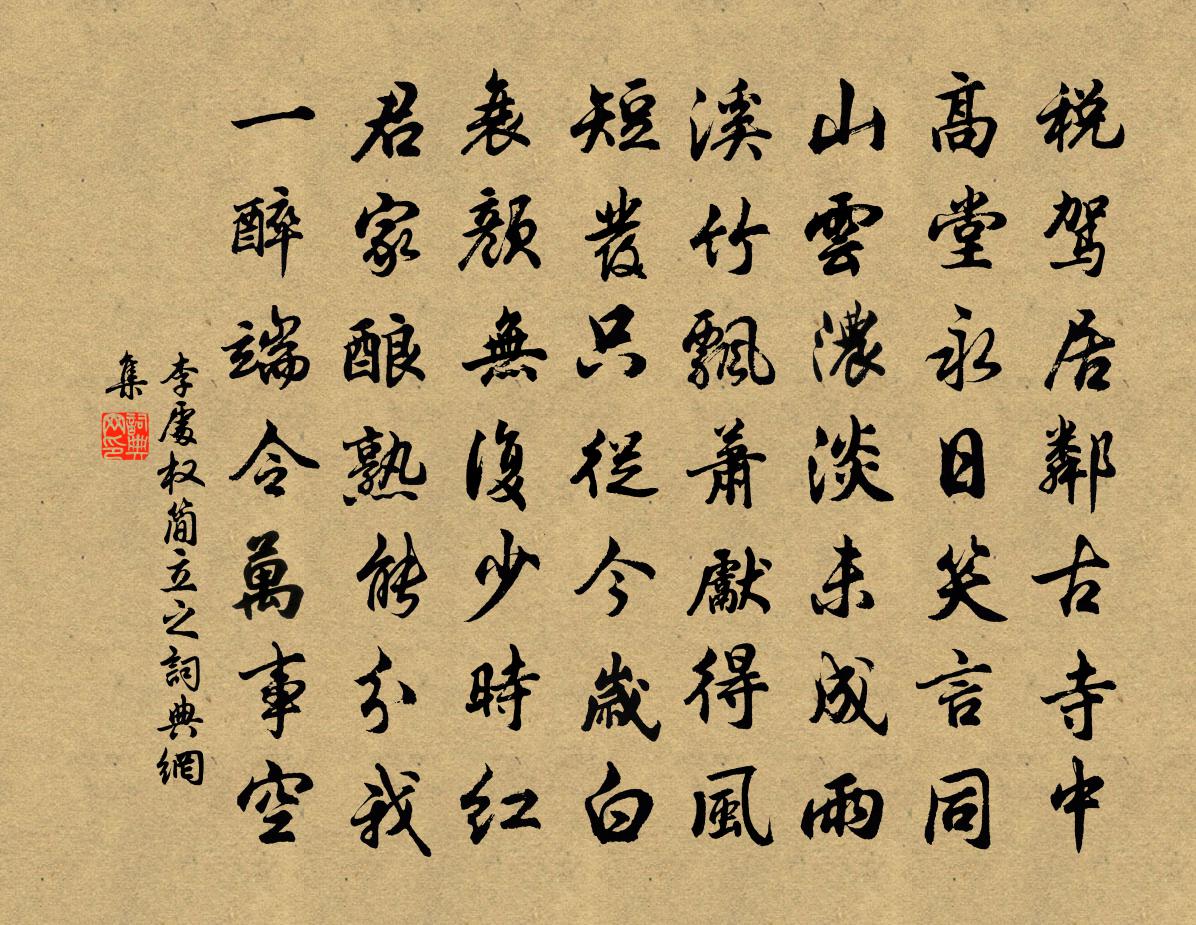 税驾居鄰古寺中
高堂永日笑言同
山雲濃淡未成雨
溪竹飄蕭獻得風
短發只從今歲白
衰顔無復少時红
君家酿熟能分我
一醉端令萬事空
李處权简立之詞典網
集
詞典
网印